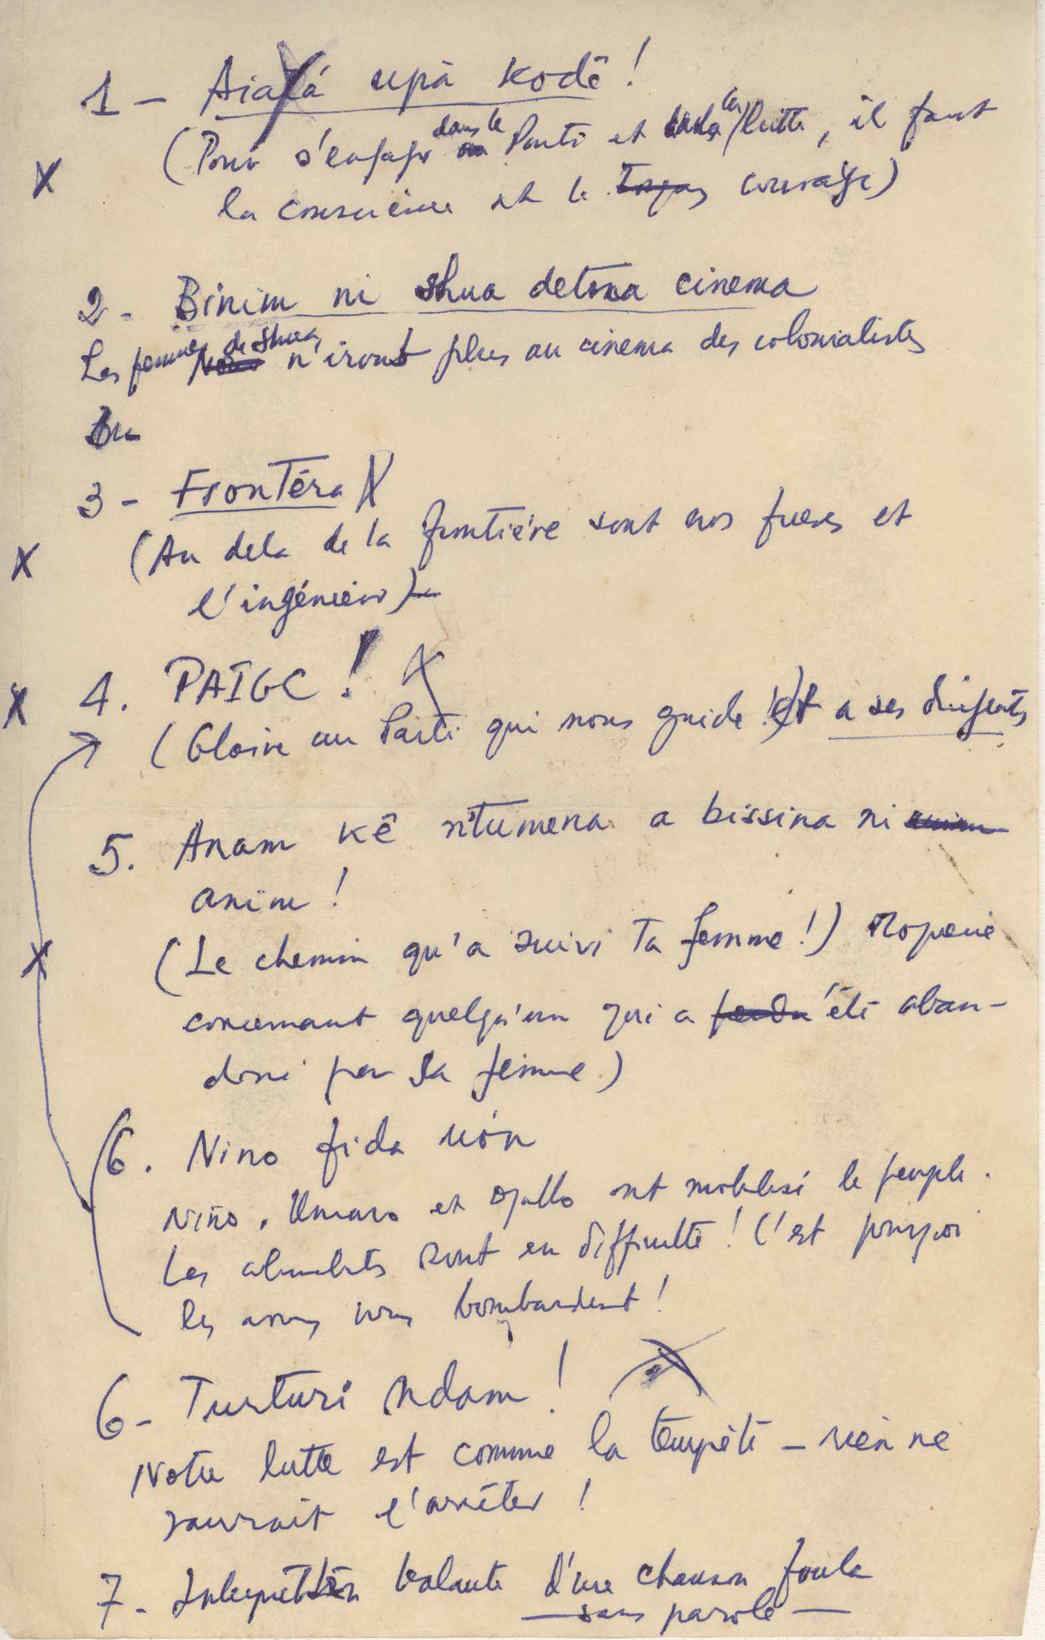 1 - Aiatá upà kodê !
(Pour s'engager dans le Parti et la lutte, il faut
la conscience et le courage)
2 - Binim ni shua detona cinema
Les femmes de Shua n'iront plus au cinema des colonialistes
3 - Frontéra
(Au dela de la frontière sont nos freres et
l'ingénieur) -
4. PAIGC !
(Gloire au Parti qui nous guide ! et a ses dirigeants
5. Anam kê n'tumena a bissina ni
anim !
(Le chemin qu'a suivi ta femme !)
concernant quelqu'un qui a été aban-
doné par sa femme)
6. Nino fida
Niño, Umaro et Djallo ont mobilisé le peuple.
Les sont en difficulté ! C'est pourquoi
les nous bombardent !
6 - Turturi Ndam !
Notre lutte est comme la tempête - rien ne
saurait l'arrêter !
7 - balante d'une chanson foula
- sans parole -